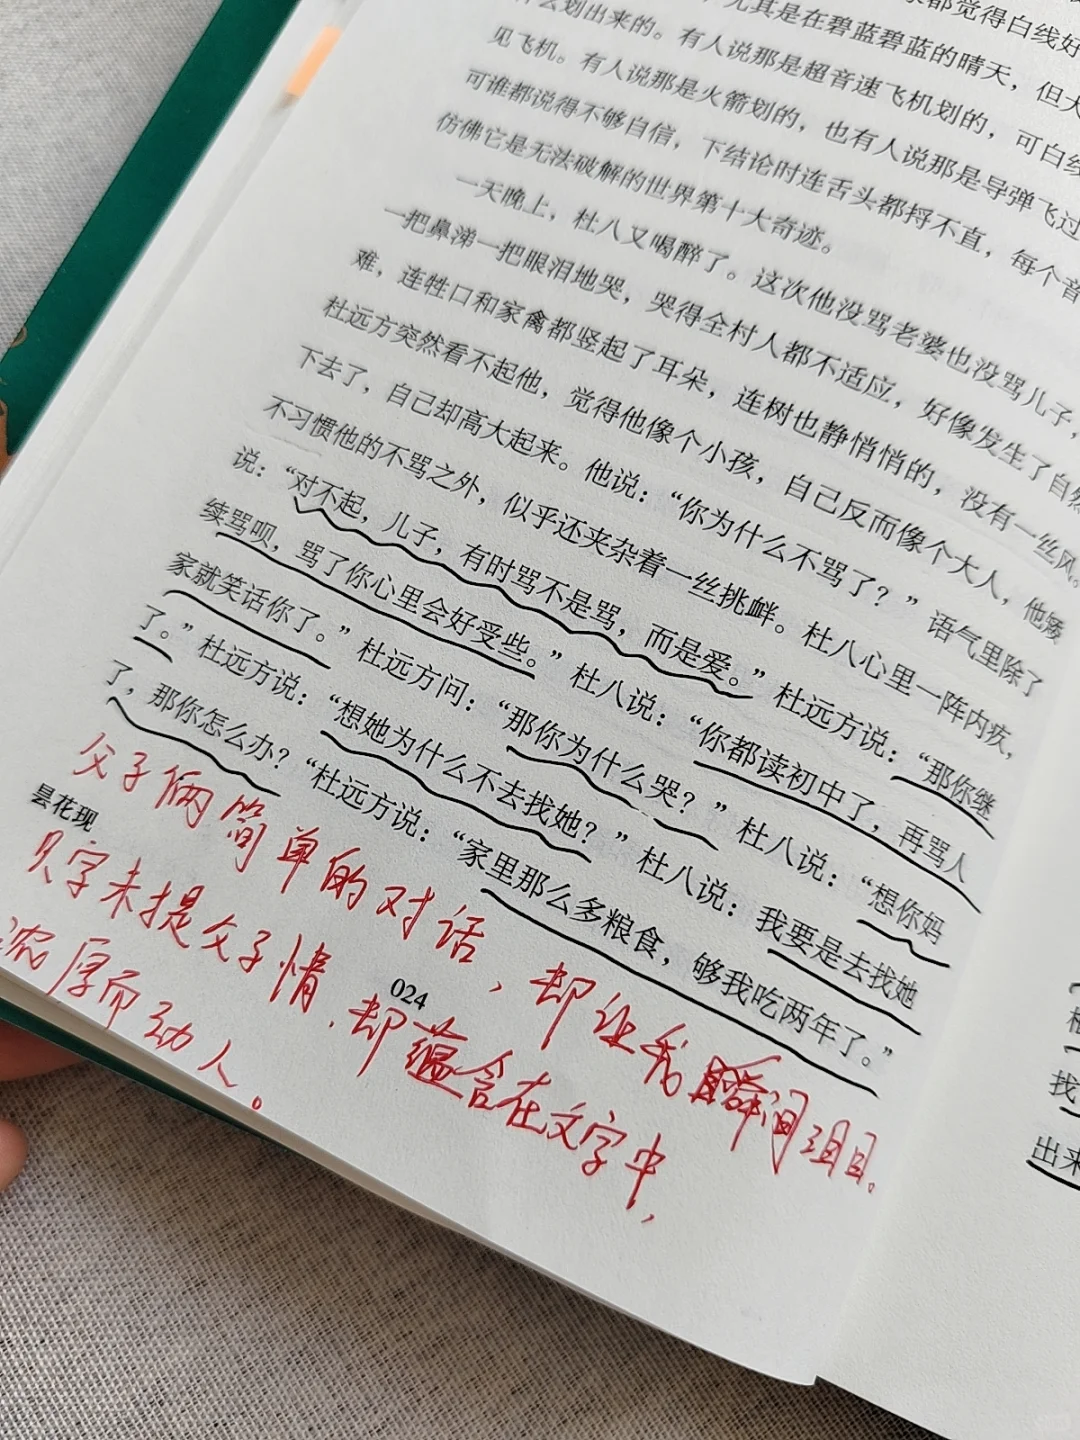 都觉得白线好
什么划出来的。尤其是在碧蓝碧蓝的晴天，但大
见飞机。有人说那是超音速飞机划的，可白线
可谁都说得不够自信，有人说那是火箭划的，也有人说那是导弹飞过
仿佛它是无法破解的世界第十大奇迹。下结论时连舌头都捋不直，每个音
一天晚上，杜八又喝醉了。这次他没骂老婆也没骂儿子，
一把鼻涕一把眼泪地哭，哭得全村人都不适应，好像发生了自然
难，连牲口和家禽都竖起了耳朵，连树也静悄悄的，没有一丝风。
杜远方突然看不起他，觉得他像个小孩，自己反而像个大人，他矮
下去了，自己却高大起来。他说：“你为什么不骂了？”语气里除了
不习惯他的不骂之外，似乎还夹杂着一丝挑衅。杜八心里一阵内疚，
说：“对不起，儿子，有时骂不是骂，而是爱。”杜远方说：“那你继
续骂呗，骂了你心里会好受些。”杜八说：“你都读初中了，再骂人
家就笑话你了。”杜远方问：“那你为什么哭？”杜八说：“想你妈
了。”杜远方说：“想她为什么不去找她？”杜八说：我要是去找她
了，那你怎么办？“杜远方说：“家里那么多粮食，够我吃两年了。”
父子俩简单的对话，却让我瞬间泪目。
昙花现
只字未提父子情，却蕴含在文字中，
浓厚而动人。
024
找
出来